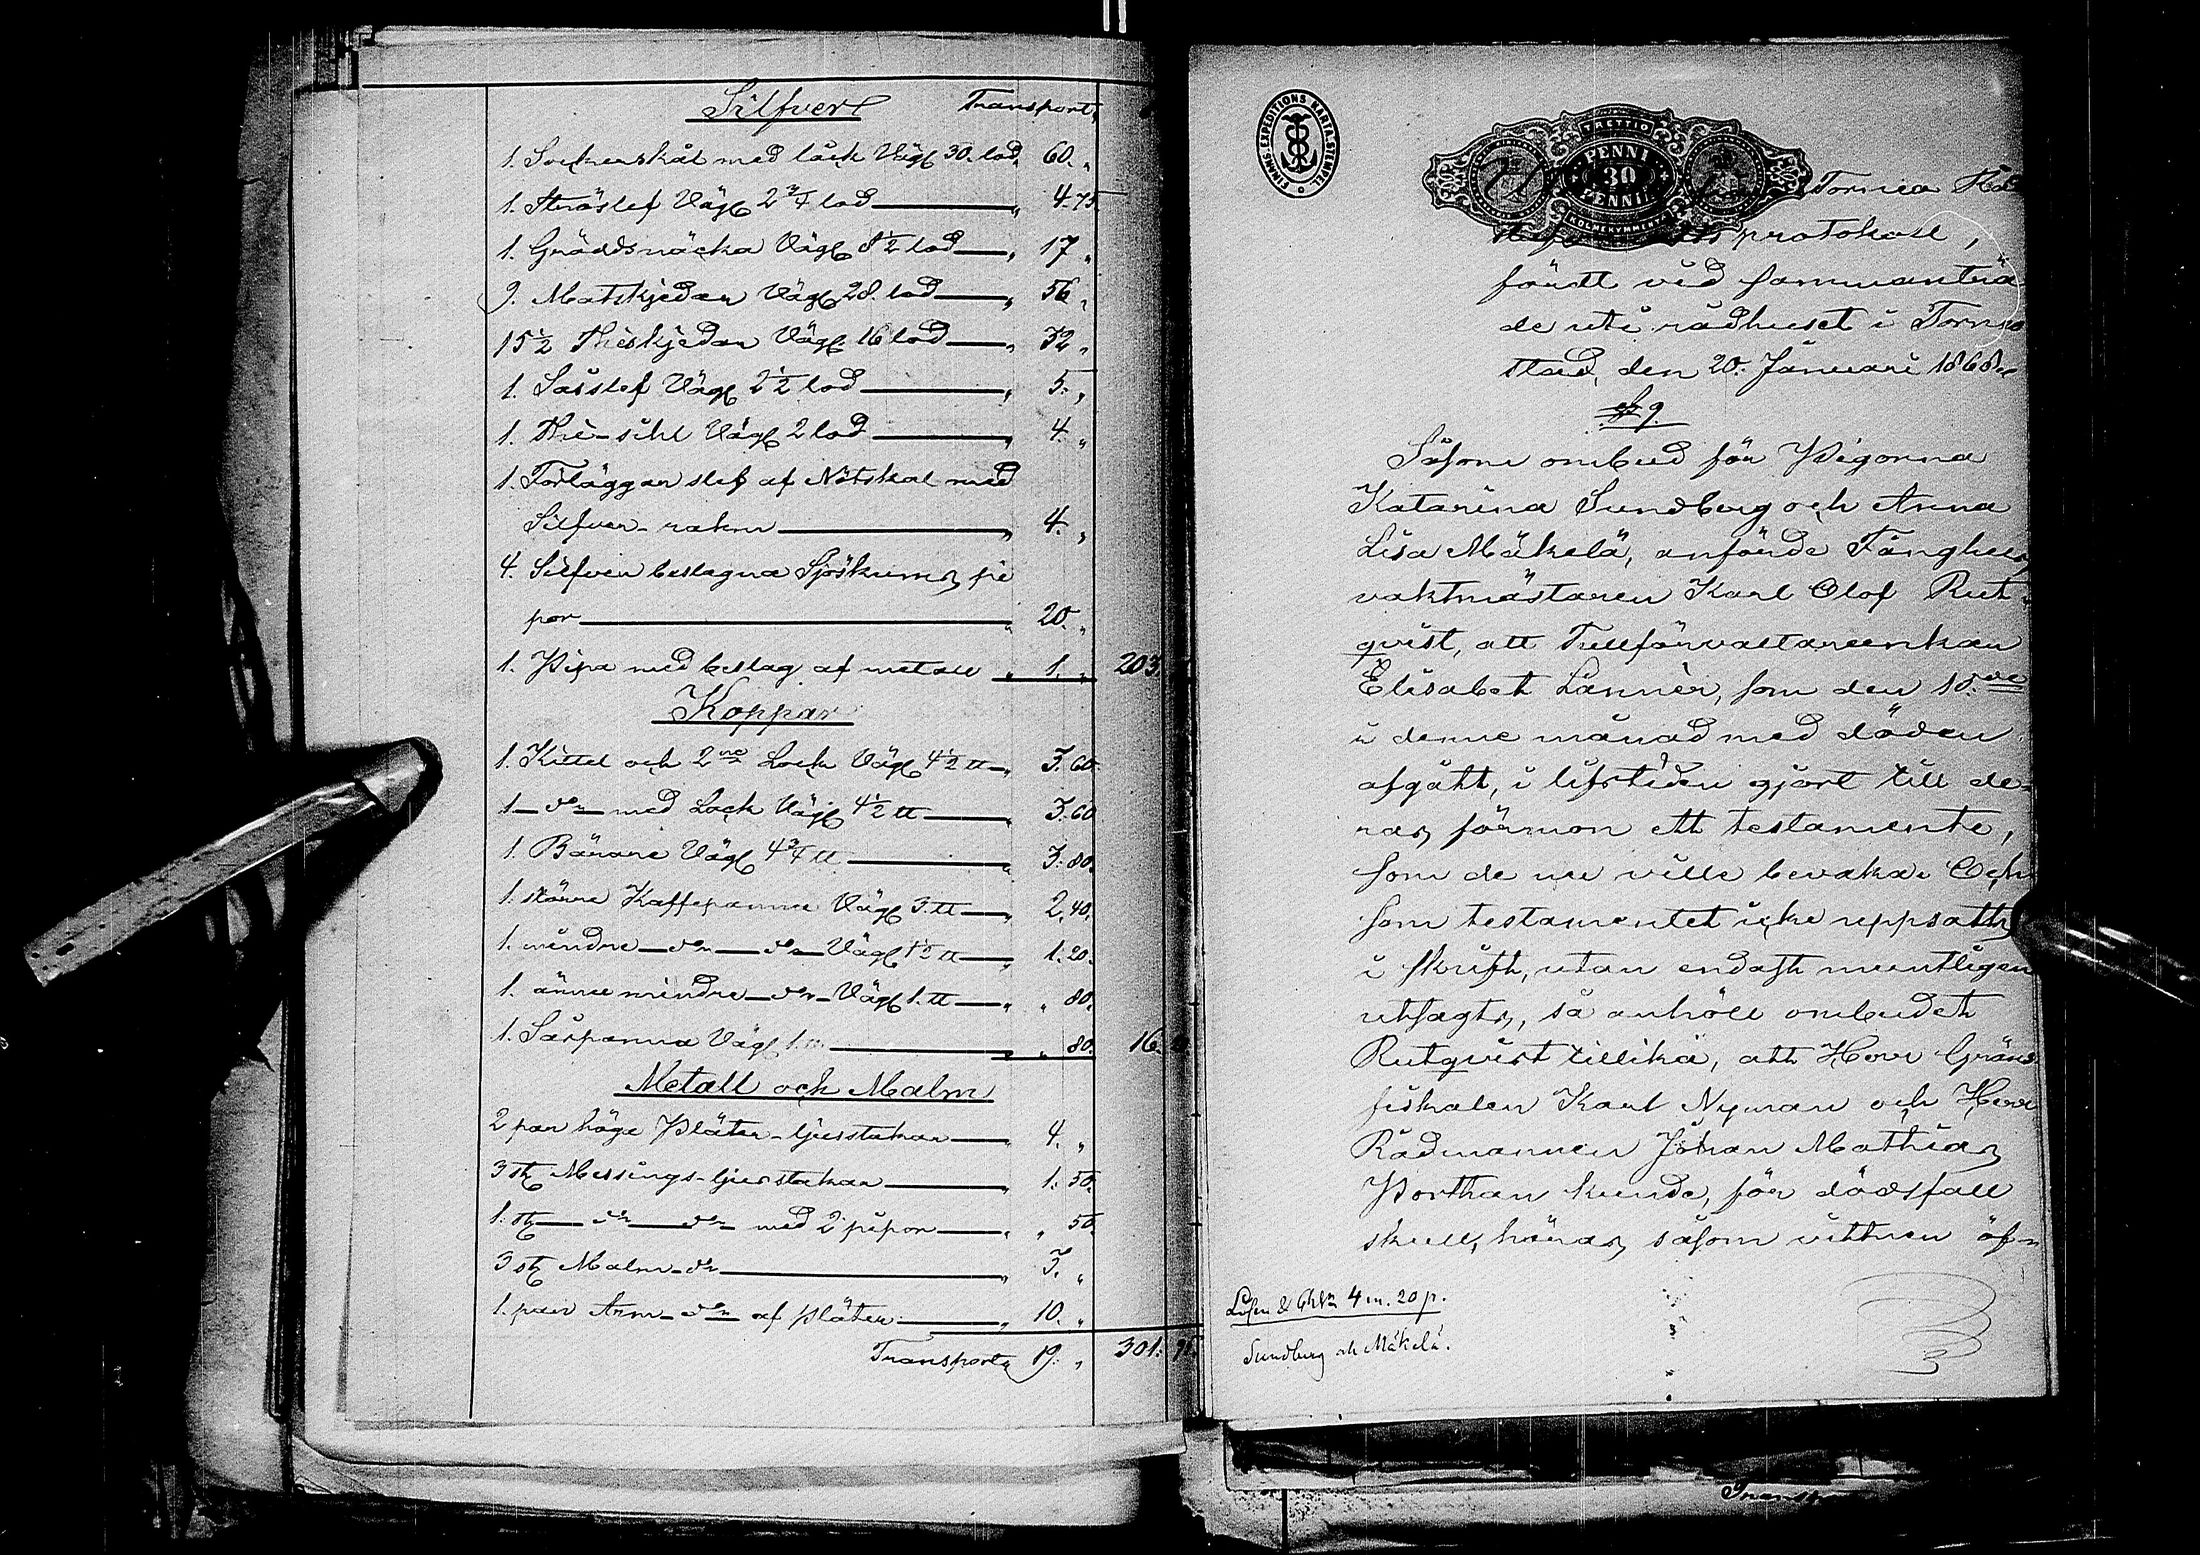 Silfver Transport
1. Sockerskål med låck Väg 30. lod 60. "
1. Ströslef Väg 2 3/4 lod " 4.75.
1. Gräddsnäcka Väg 8 1/2 lod " 17 "
9. Matskjedar Väg 28. lod " 56 "
15 1/2 Theskjedar Väg 16 lod " 32 "
1. Såsslef Väg 2 1/2 lod " 5. "
1. The-sihl Väg 2 lod " 4. "
1. Förläggar slef af Nötskal med
Silfver-ram " 4. "
4. Silfver beslagna Sjöskums pi
por " 20. "
1. Pipa med beslag af metall " 1. " 203.
Koppar
1. Kittel och 2ne Lock Väg 4 1/2 ℔ " 3.60.
1 – do – med Lock Väg 4 1/2 ℔ " 3.60
1. Bärare Väg 4 3/4 ℔ " 3:80.
1. större Kaffepanna Väg 3. ℔ " 2,40.
1. mindre – do – do – Väg 1 1/2 ℔ " 1:20.
1. ännu mindre – do – Väg 1. ℔ " " 80.
1. Såspanna Väg 1. ℔ " " 80. 16.
Metall och Malm
2 par höga Pläter-ljusstakar " 4. "
3 st Messings-ljusstakar " 1.50.
1: st – do – do – med 2 pipor " " 50.
3 st Malm – do " 3. "
1. par Arm – do – af pläter " 10. "
Transport 19. " 301:
FINANS-EXPEDITIONS KARTA-STEMPEL
TRETTIO
PENNI
30
PENNIÄ
KOLMEKYMMENTÄ
Torneå
protokoll,
fördt vid sammanträ
de uti rådhuset i Torneå
stad, den 20. Januari 1868.
§ 9.
Såsom ombud för Pigorna
Katarina Sundberg och Anna
Lisa Mäkelä, anförde Fånghus
vaktmästaren Karl Olof Rut-
qvist, att Tullförvaltareenkan
Elisabet Lannér, som den 10.de
i denne månad med döden
afgått, i lifstiden gjort till de-
ras förmon ett testamente,
som de nu ville bevaka. Och
som testamentet icke uppsatts
i skrift, utan endast muntligen
utsagts, så anhöll ombudet
Rutqvist tillika, att Herr Gräns
fiskalen Karl Nyman och Herr
Rådmannen Johan Mathias
Porthan kunde, för dödsfall
skull, höras såsom vittnen öf-
Lösen & 4 m. 20 p.
Sundberg och Mäkelä.